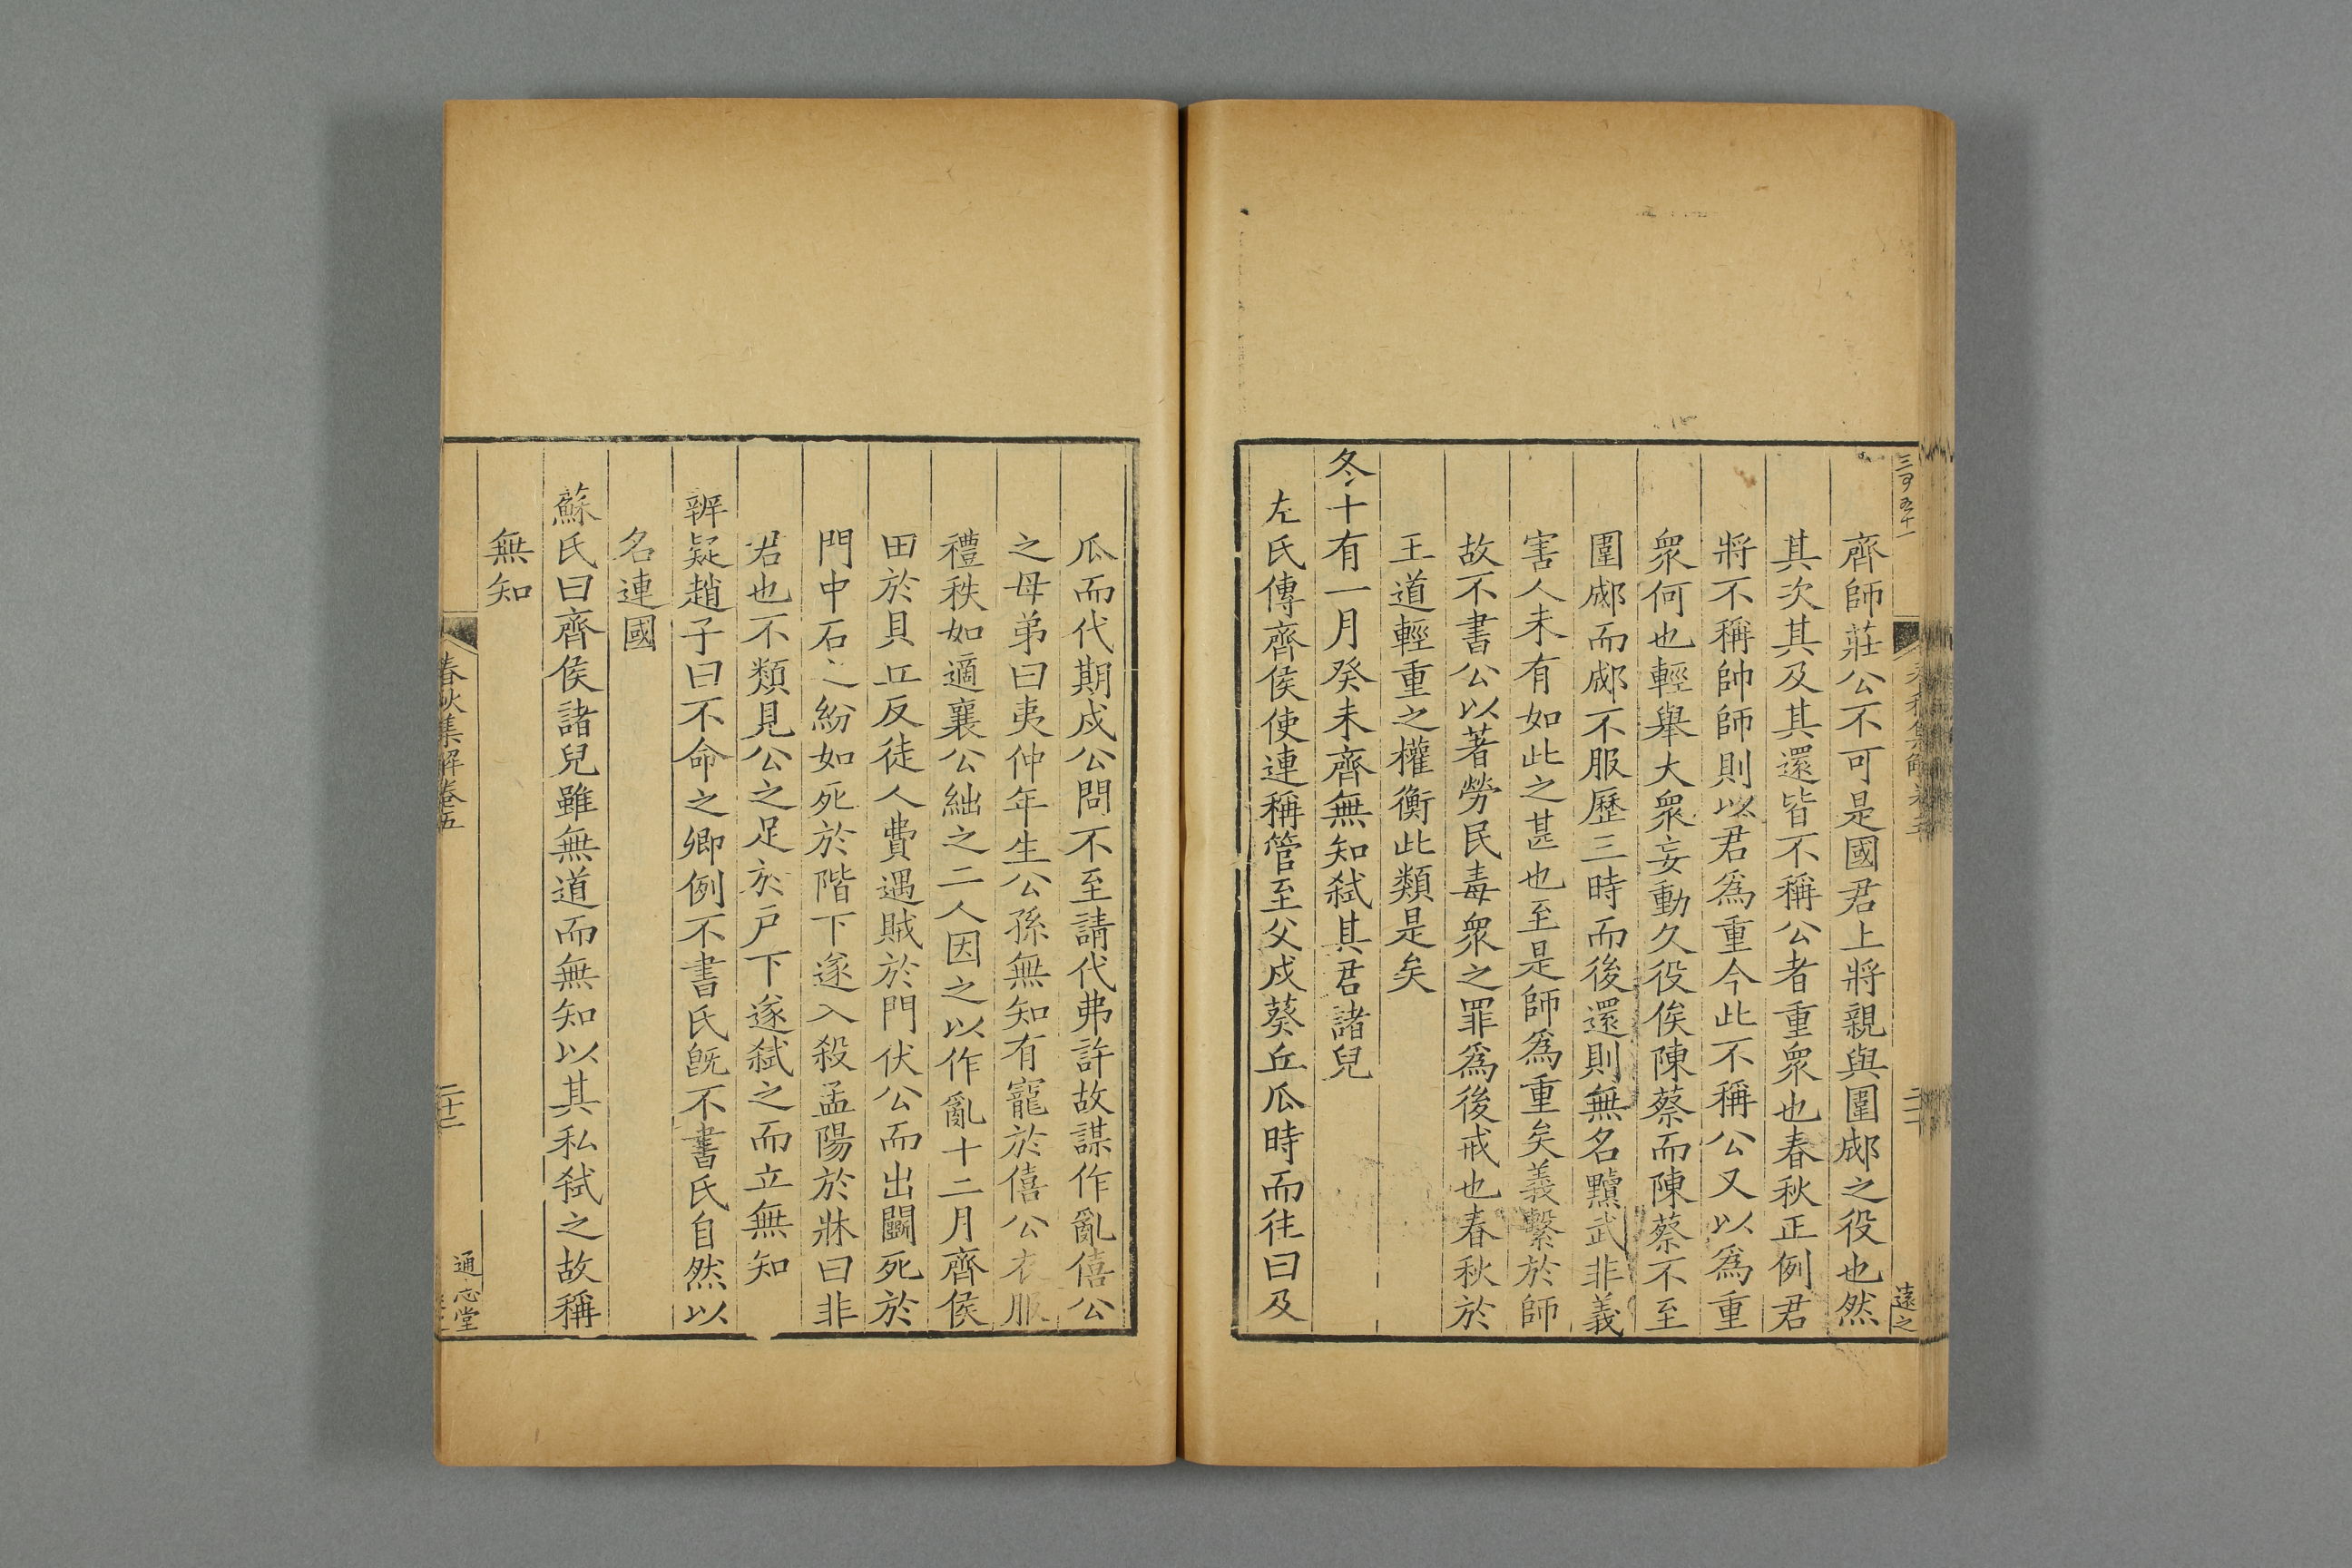 三百五十一
遠之
齊師莊公不可是國君上將親與圍郕之役也然
其次其及其還皆不稱公者重衆也春秋正例君
將不稱帥師則以君爲重今此不稱公又以爲重
衆何也輕舉大衆妄動久役俟陳蔡而陳蔡不至
圍郕而郕不服歷三時而後還則無名黷武非義
害人未有如此之甚也至是師爲重矣義繫於師
故不書公以著勞民毒衆之罪爲後戒也春秋於
王道輕重之權衡此類是矣
冬十有一月癸未齊無知弑其君諸兒
左氏傳齊侯使連稱管至父戍葵丘瓜時而往曰及
瓜而代期戍公問不至請代弗許故謀作亂僖公
之母弟曰夷仲年生公孫無知有寵於僖公衣服
禮秩如適襄公絀之二人因之以作亂十二月齊侯
田於貝丘反徒人費遇賊於門伏公而出鬭死於
門中石之紛如死於階下遂入殺孟陽於牀曰非
君也不類見公之足於戶下遂弑之而立無知
辨疑趙子曰不命之卿例不書氏旣不書氏自然以
名連國
蘇氏曰齊侯諸兒雖無道而無知以其私弑之故稱
無知
春秋集解卷五
二十二
通志堂